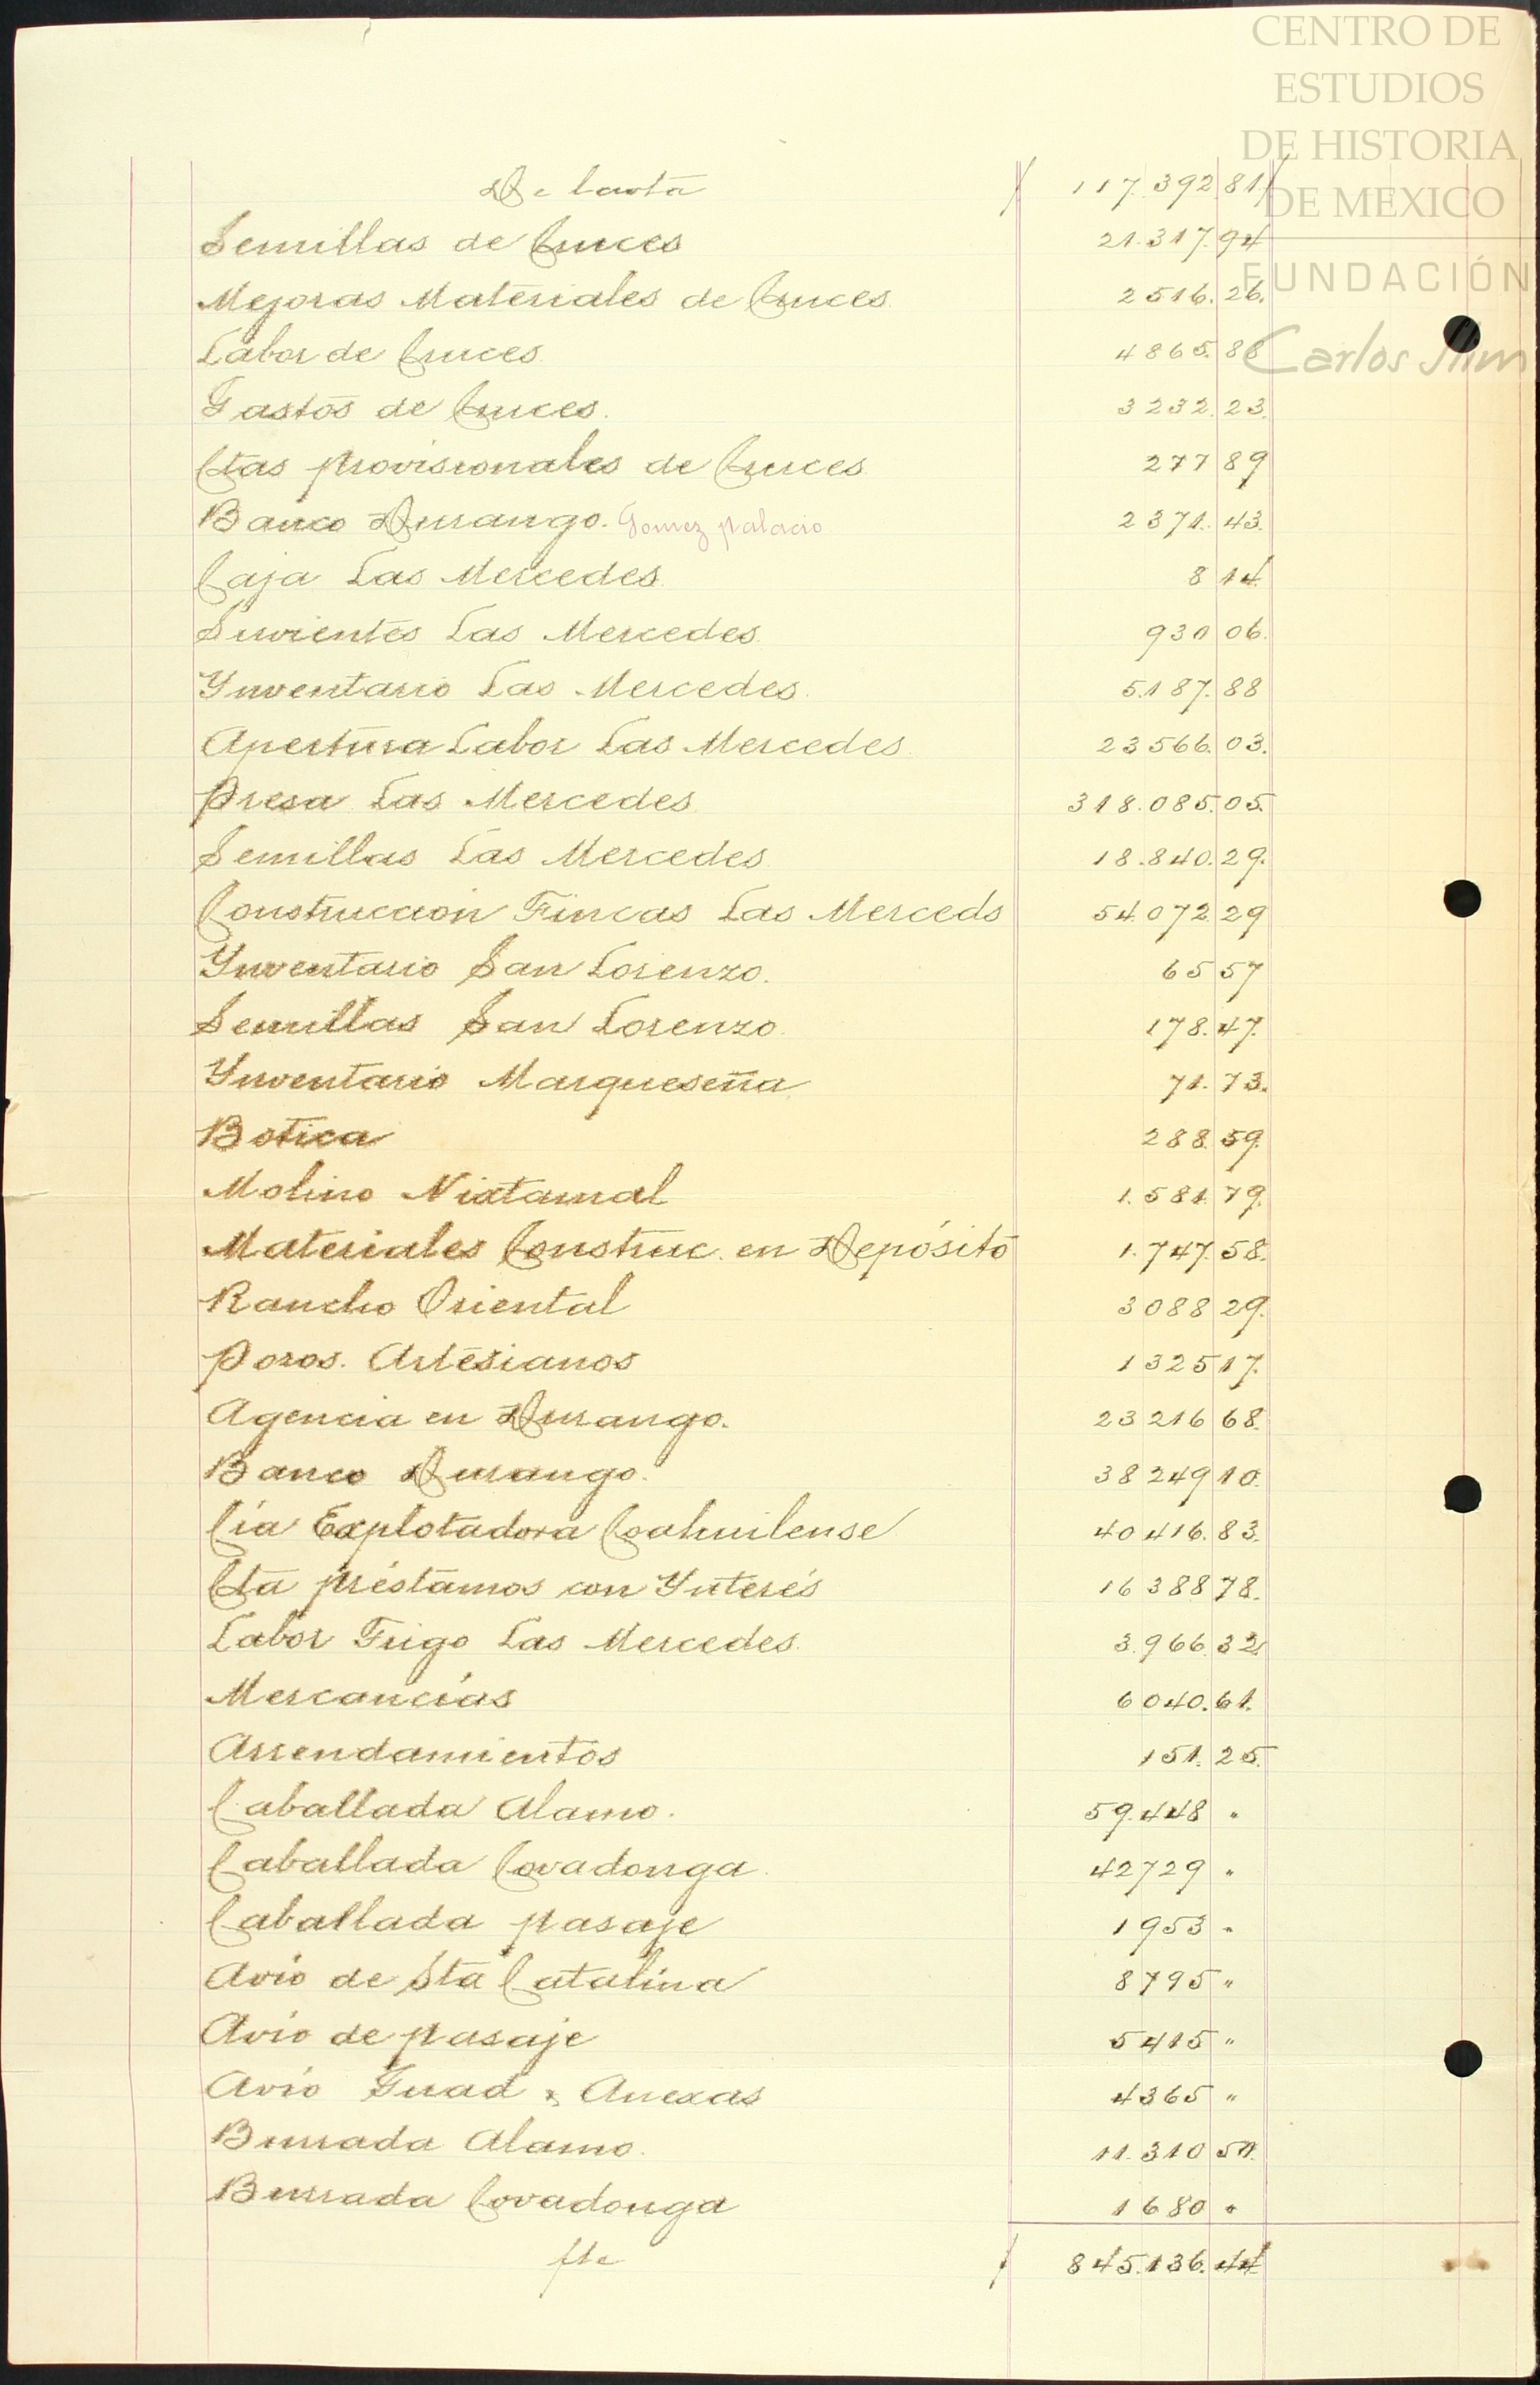 CENTRO DE
ESTUDIOS
DE HISTORIA
DE MEXICO
FUNDACIÓN
Carlos Slim
De la vta 117.392 81
Semillas de Cruces 21.317.94
Mejoras Materiales de Cruces. 2516.26.
Labor de Cruces. 4865.88
Gastos de Cruces. 3232.23.
Ctas provisionales de Cruces 277 89
Banco Durango. Gomez palacio 2371.43.
Caja Las Mercedes. 8 14.
Sirvientes Las Mercedes. 930 06.
Ynventario Las Mercedes. 5.187.88
Apertura Labor Las Mercedes. 23566.03.
Presa Las Mercedes. 318.085.05.
Semillas Las Mercedes. 18.840.29.
Construccion Fincas Las Merceds 54.072 29
Ynventario San Lorenzo. 65 57
Semillas San Lorenzo. 178.47.
Ynventario Marqueseña. 71.73.
Botica 288.59.
Molino Nixtamal 1.581.79.
Materiales Construc. en Depósito 1.747.58.
Rancho Oriental 3088 29.
Pozos. Artesianos 1325 17.
Agencia en Durango. 23216 68.
Banco Durango. 38249 10.
Cía Explotadora Coahuilense 40416.83.
Cta préstamos con Ynterés 16388 78.
Labor Trigo Las Mercedes. 3.966.32.
Mercancías 6040.61.
Arrendamientos 151.25.
Caballada Alamo. 59.448 "
Caballada Covadonga. 42729 "
Caballada pasaje 1953 "
Avio de Sta Catalina 8795 "
Avio de pasaje 5415 "
Avio Guad y Anexas 4365 "
Burrada Alamo. 11.310 50.
Burrada Covadonga 1680 "
fte 845.136.44